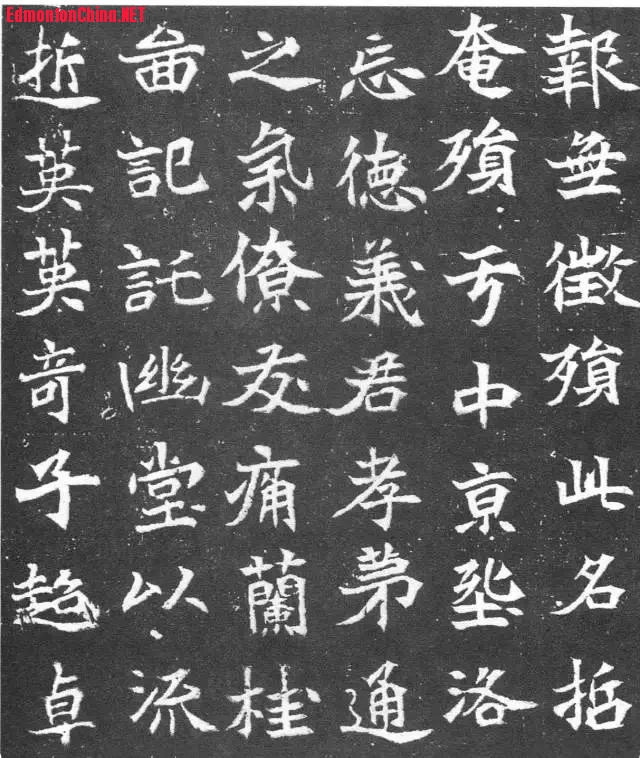 EdmontonChina.NET
報無徵殞此名哲
奄殞亐中京墜洛
忘德義君孝弟通
之氣僚友痛蘭桂
啚記託幽堂以流
逝英英奇子超卓